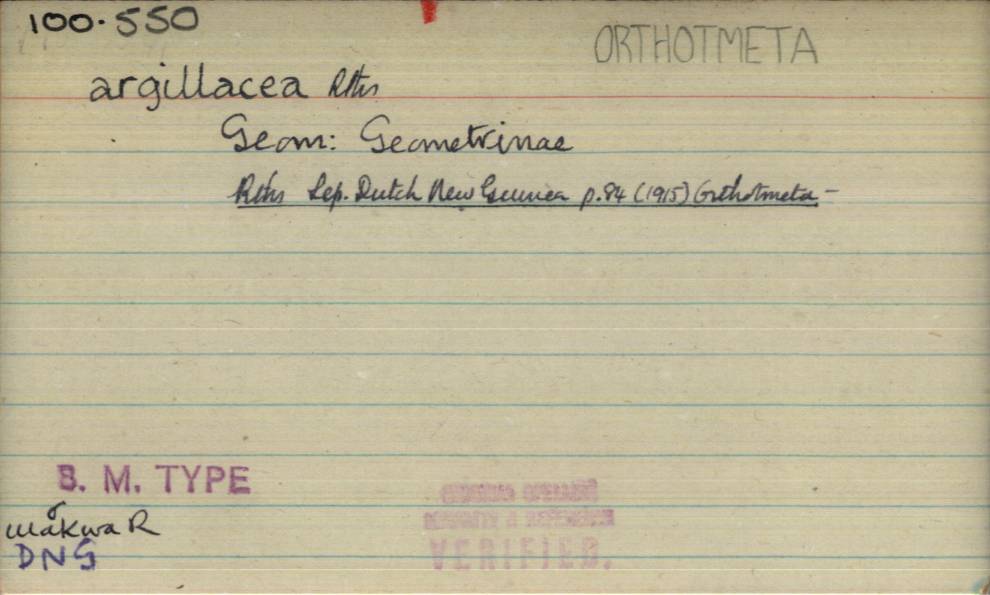 100·550
ORTHOTMETA
argillacea Rths
Geom: Geometrinae
Rths Lep. Dutch New Guinea p.84 (1915) Orthotmeta –
B. M. TYPE
R
DNG
VERIFIED.